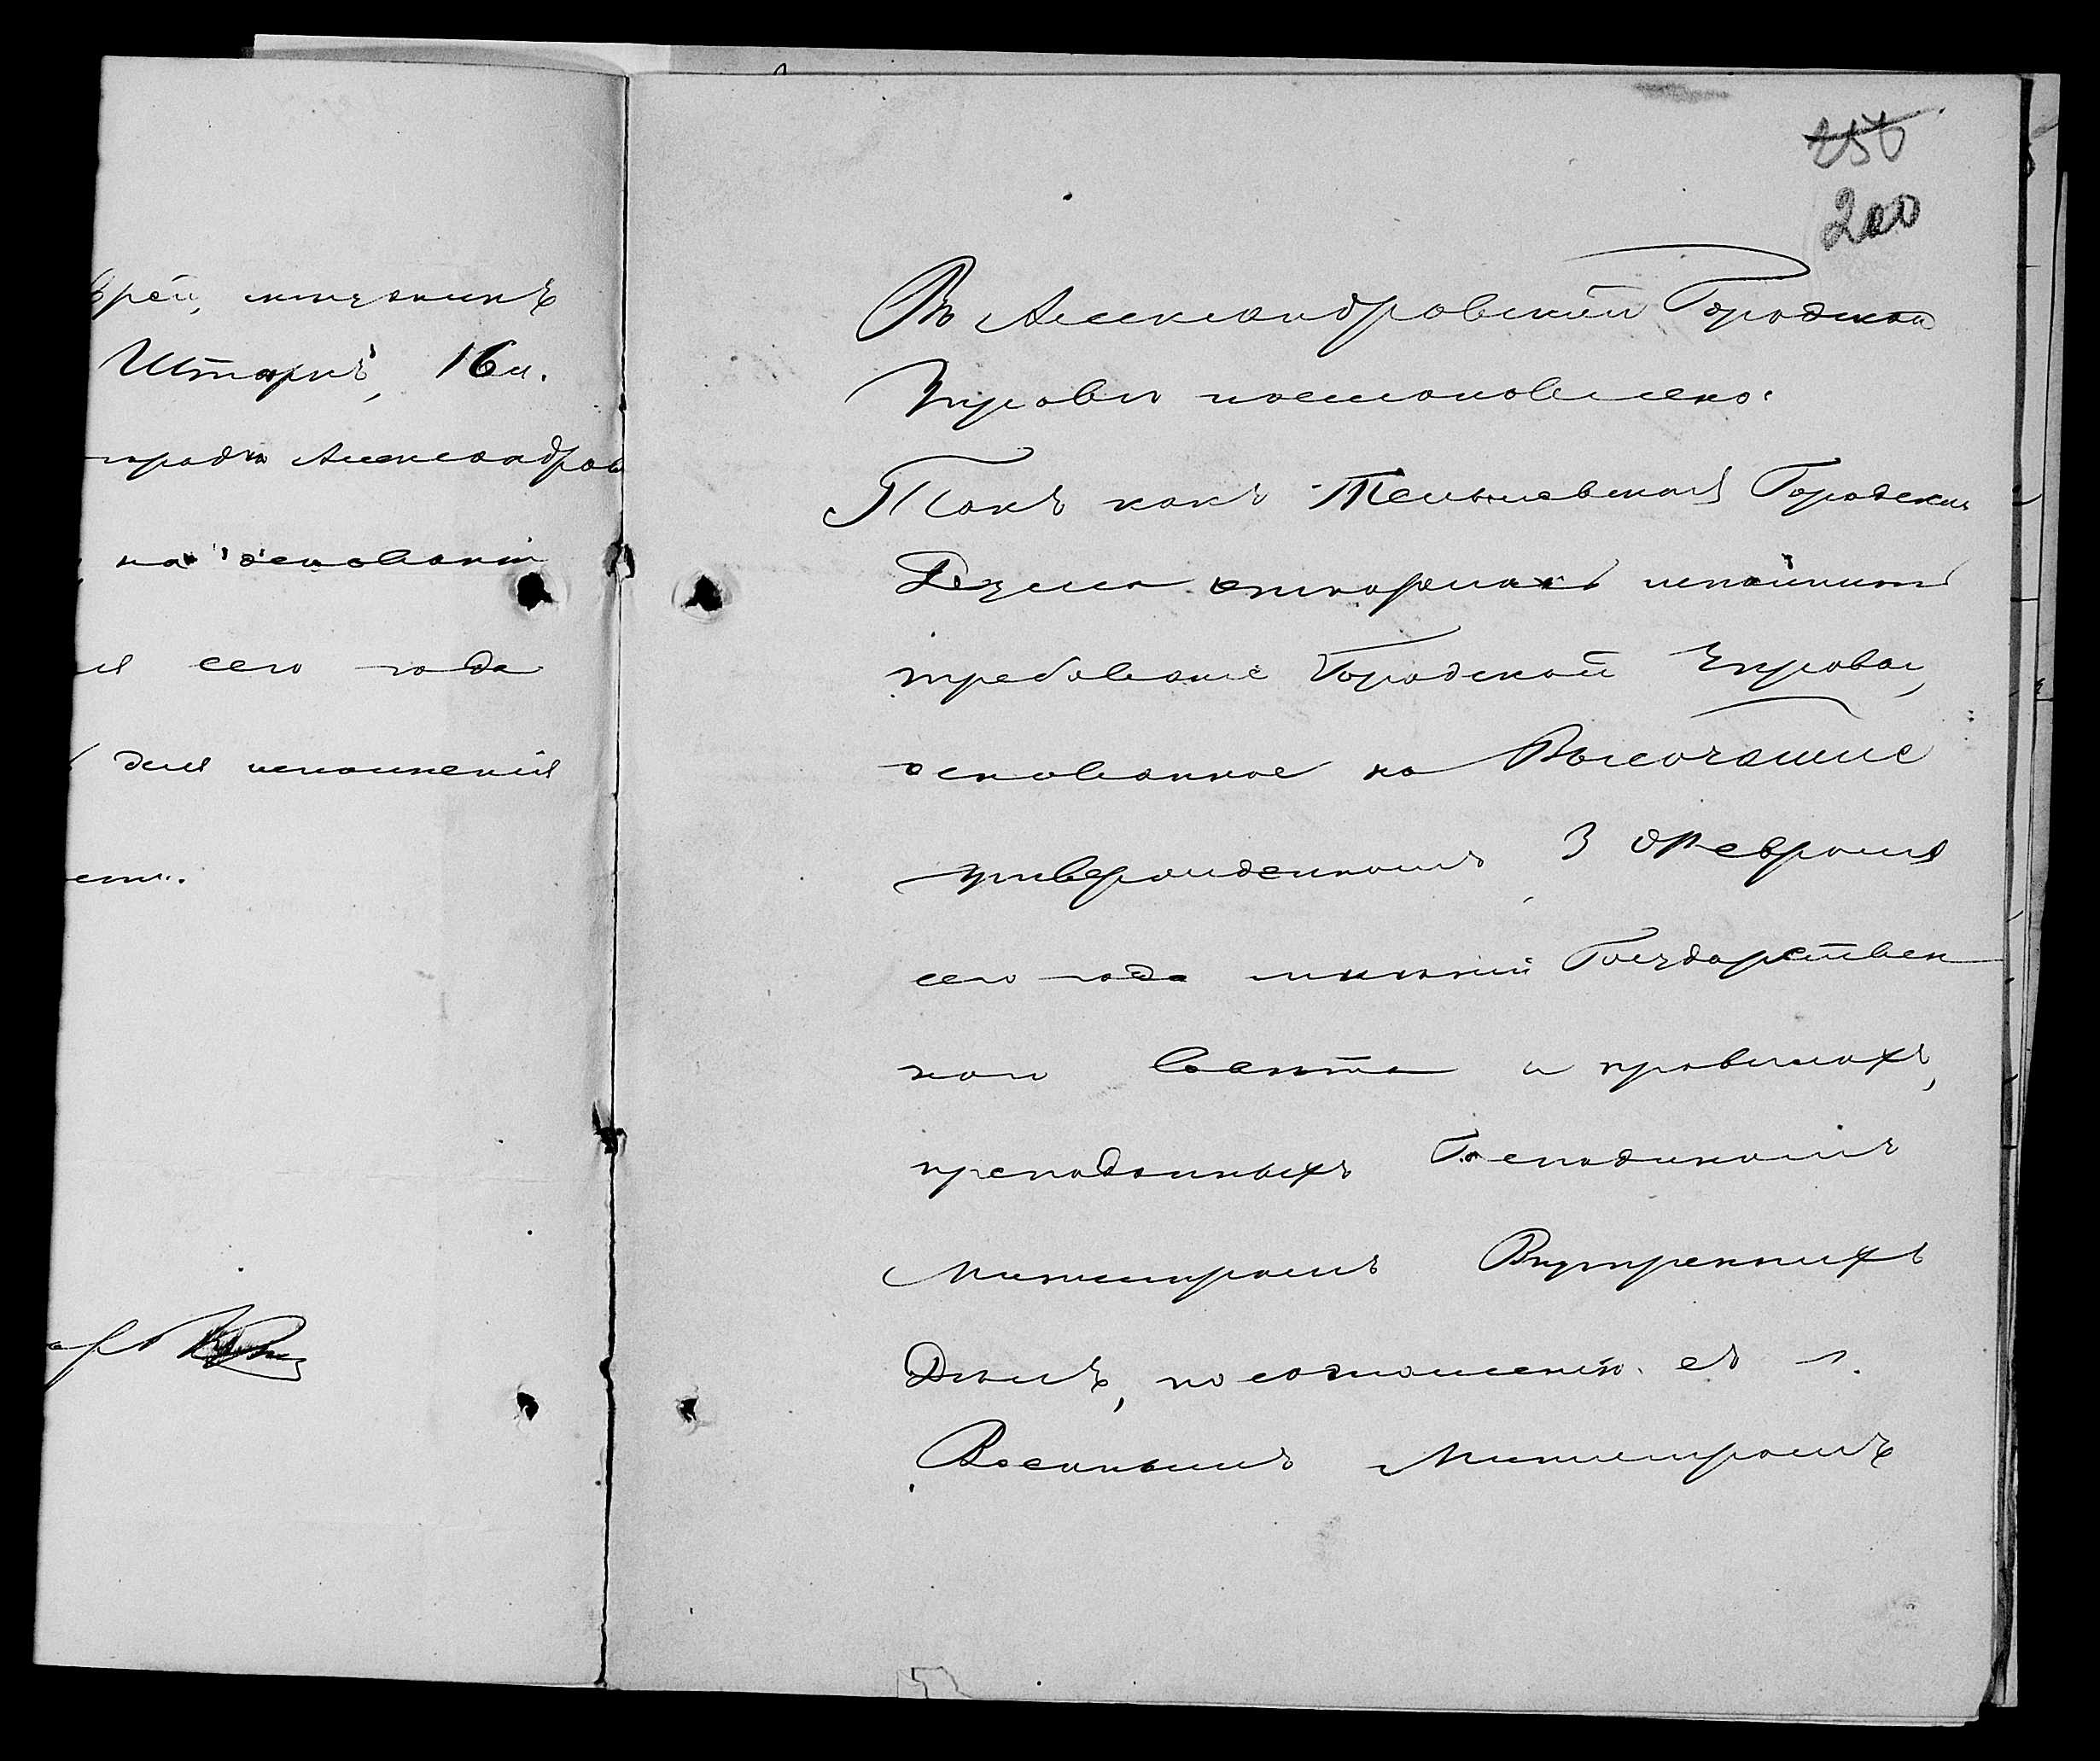 врей, мѣщанинъ
Штаркъ, 16 л.
города Александров
на основаніи
ля сего года
для исполненія
250
200
Въ Александровской Городской
Управѣ постановлено:
Такъ какъ Тельшевская Городская
Дума исполнить
требованіе Городской Управы,
основанное на Высочайше
утвержденномъ 3 Февраля
сего года мнѣніи Государствен
наго Совѣта и правилахъ,
преподанныхъ Господиномъ
Министромъ Внутреннихъ
Дѣлъ, по соглашенію съ г.
Военнымъ Министромъ